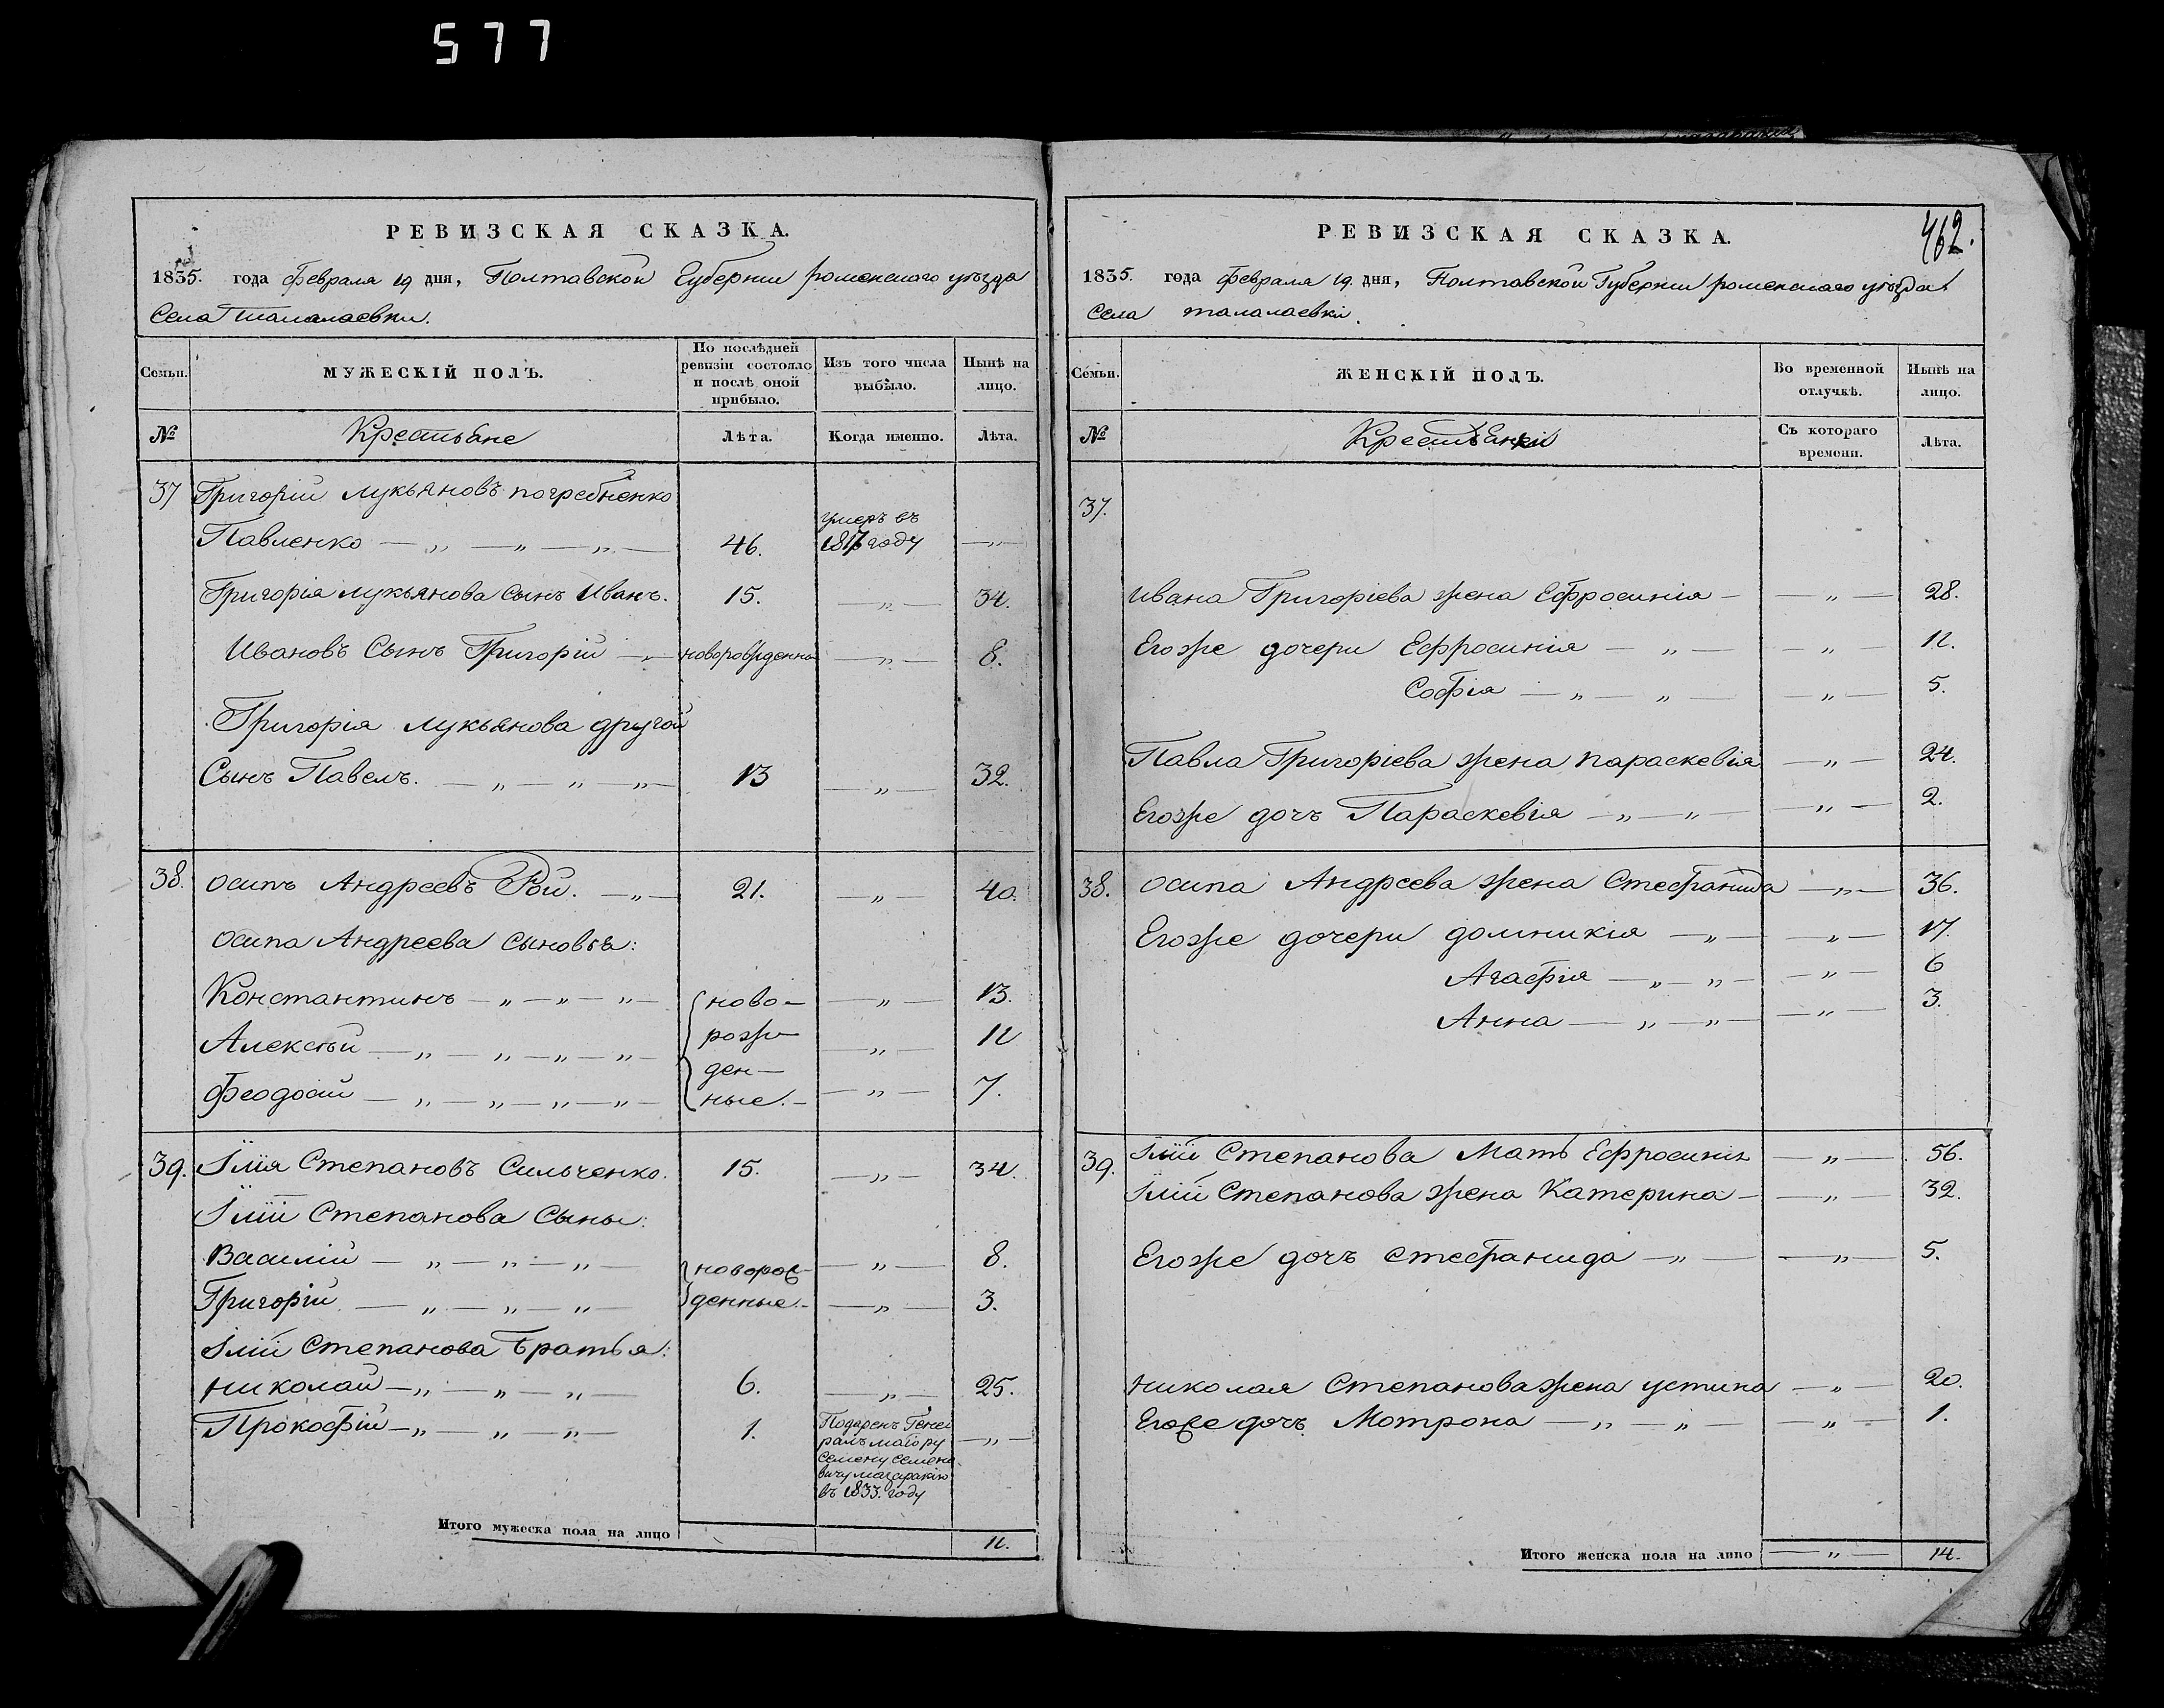 577
РЕВИЗСКАЯ СКАЗКА.
1835. года Февраля 19 дня, Полтавской Губернии роменского уѣзда
Села талалаевки.
Семьи.
МУЖЕСКІЙ ПОЛЪ.
По послѣдней
ревизіи состояло
и послѣ оной
прибыло.
Изъ того числа
выбыло.
Нынѣ на
лицо.
№
Крестьяне
Лѣта.
Когда именно.
Лѣта.
37 Григорій лукьяновъ погребненко
Павленко — „ — „ — „ — 46. умеръ въ
1817 году — „ —
Григорія лукьянова Сынъ Иванъ. 15. — „ — 34.
Ивановъ Сынъ Григорій — „ новорожденно — „ — 8.
Григорія лукьянова другой
Сынъ Павелъ. — „ — „ — „ — 13 — „ — 32.
38. осипъ Андреевъ Рой. — „ — 21. — „ — 40.
осипа Андреева сыновья:
Константинъ — „ — „ — „ — ново— — „ — 13.
Алексѣй — „ — „ — „ — „ — рож— — „ — 11
ден—
Феодосій — „ — „ — „ — „ — ные. — — „ — 7.
39. Ілія Степановъ Сильченко. 15. — „ — 34.
Іліи Степанова Сыны:
Василій — „ — „ — „ — новорож— — „ — 8.
Григорій — „ — „ — „ — денные. — — „ — 3.
Іліи Степанова братья:
николай — „ — „ — „ — 6. — „ — 25.
Прокофій — „ — „ — „ — 1. Подаренъ Гене
ралъ маіору
Семену Семено
вичу
въ 1833. году — „ —
Итого мужеска пола на лицо 11.
462.
РЕВИЗСКАЯ СКАЗКА.
1835. года Февраля 19. дня, Полтавской Губернии роменского уѣзда
Села талалаевки.
Семьи.
ЖЕНСКІЙ ПОЛЪ.
Во временной
отлучкѣ.
Нынѣ на
лицо.
№
Крестьянки
Съ котораго
времени.
Лѣта.
37.
ивана Григоріева жена Ефросинія — — „ — 28.
Егоже дочери Ефросинія — „ — — „ — 11.
Софія — „ — „ — — „ — 5.
Павла Григоріева жена параскевія — „ — 24.
Егоже дочъ Параскевія — „ — „ — — „ — 2.
38. осипа Андреева жена Стефанида — „ — 36.
Егоже дочери домникія — „ — — „ — 17.
Агафія — „ — „ — — „ — 6
Анна — „ — „ — — „ — 3.
39. Іліи Степанова Мать Ефросинія — „ — 56.
Іліи Степанова жена Катерина — — „ — 32.
Егоже дочъ стефанида — „ — — „ — 5.
николая Степанова жена устина — „ — 20.
Егоже дочъ Мотрона — „ — „ — — „ — 1.
Итого женска пола на лицо — „ — 14.